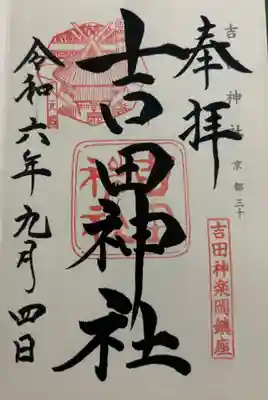 奉拝
吉田神社
令和六年九月四日
吉田神楽岡鎮座
吉田
神社